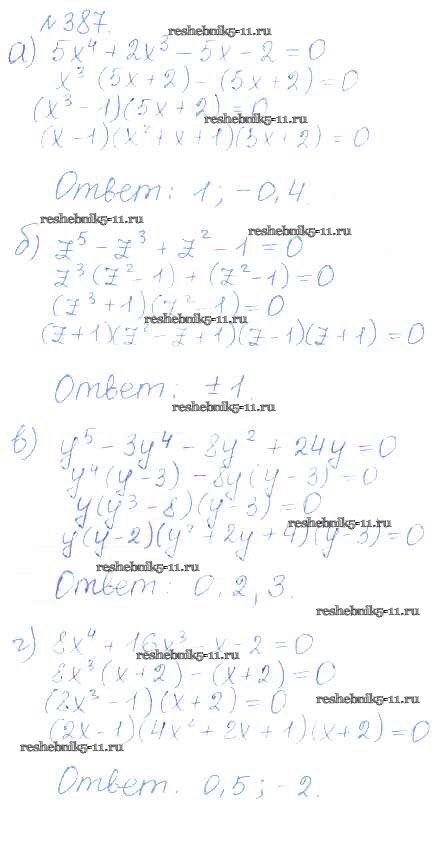 №387.
reshebnik5-11.ru
а) 5x⁴ + 2x³ - 5x - 2 = 0
x³ (5x + 2) - (5x + 2) = 0
(x³ - 1)(5x + 2) = 0
reshebnik5-11.ru
(x - 1)(x² + x + 1)(5x + 2) = 0
Ответ: 1; -0,4.
reshebnik5-11.ru
reshebnik5-11.ru
б) z⁵ - z³ + z² - 1 = 0
z³ (z² - 1) + (z² - 1) = 0
(z³ + 1)(z² - 1) = 0
reshebnik5-11.ru
(z + 1)(z² - z + 1)(z - 1)(z + 1) = 0
Ответ: ± 1.
reshebnik5-11.ru
в) y⁵ - 3y⁴ - 8y² + 24y = 0
y⁴ (y - 3) - 8y (y - 3) = 0
y(y³ - 8)(y - 3) = 0
reshebnik5-11.ru
y(y - 2)(y² + 2y + 4)(y - 3) = 0
reshebnik5-11.ru
Ответ: 0, 2, 3.
reshebnik5-11.ru
г) 8x⁴ + 16x³ - x - 2 = 0
reshebnik5-11.ru
8x³ (x + 2) - (x + 2) = 0
(8x³ - 1)(x + 2) = 0
reshebnik5-11.ru
(2x - 1)(4x² + 2x + 1)(x + 2) = 0
reshebnik5-11.ru
Ответ. 0,5; -2.